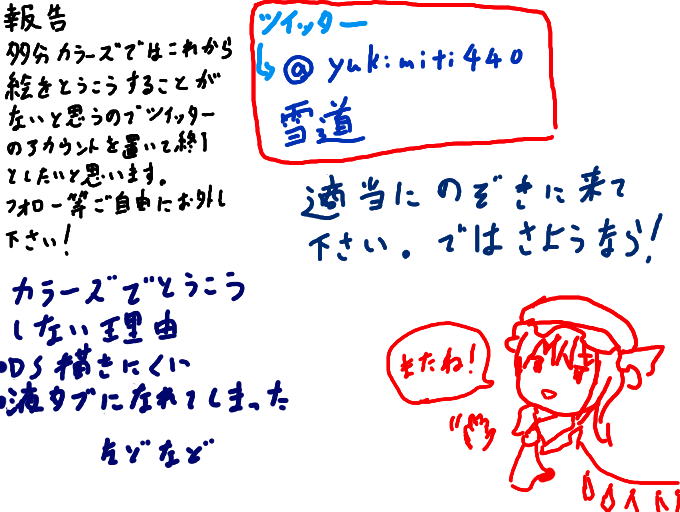 報告
多分カラーズではこれから
絵をとうこうすることが
ないと思うのでツイッター
のアカウントを置いて終了
としたいと思います。
フォロー等ご自由にお外し
下さい!
ツイッター
↳@yukimiti440
雪道
適当にのぞきに来て
下さい。ではさようなら!
カラーズでとうこう
しない理由
•DS描きにくい
•液タブになれてしまった
などなど
またね!